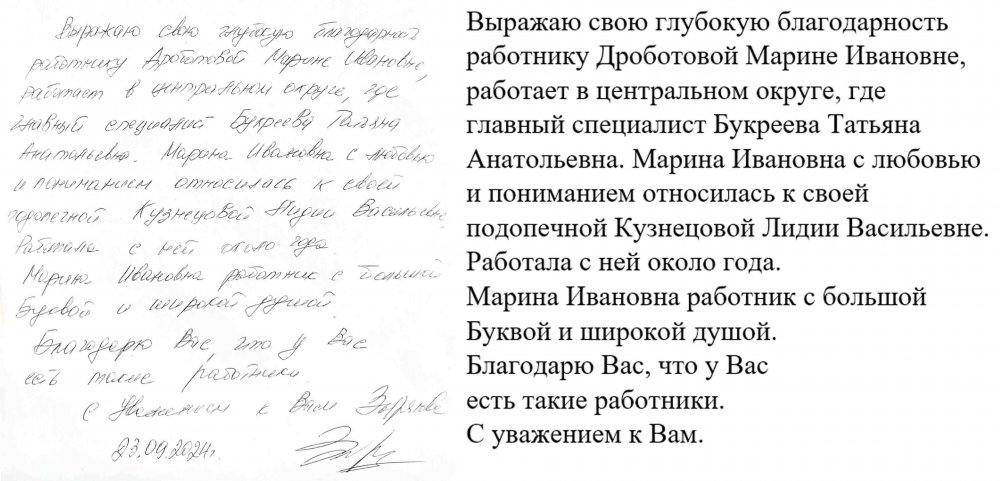 Выражаю свою глубокую благодарность
работнику Дроботовой Марине Ивановне,
работает в центральном округе, где
главный специалист Букреева Татьяна
Анатольевна. Марина Ивановна с любовью
и пониманием относилась к своей
подопечной Кузнецовой Лидии Васильевне.
Работала с ней около года.
Марина Ивановна работник с большой
Буквой и широкой душой.
Благодарю Вас, что у Вас
есть такие работники.
С Уважением к Вам
23.09.2024г.
Выражаю свою глубокую благодарность
работнику Дроботовой Марине Ивановне,
работает в центральном округе, где
главный специалист Букреева Татьяна
Анатольевна. Марина Ивановна с любовью
и пониманием относилась к своей
подопечной Кузнецовой Лидии Васильевне.
Работала с ней около года.
Марина Ивановна работник с большой
Буквой и широкой душой.
Благодарю Вас, что у Вас
есть такие работники.
С уважением к Вам.